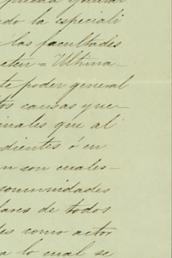 do la especiali
las facultades
Ultima-
te poder general
tos causas que
inales que al
dientes ó en
on son cuales-
comunidades
lares de todos
es como actor
a lo cual se